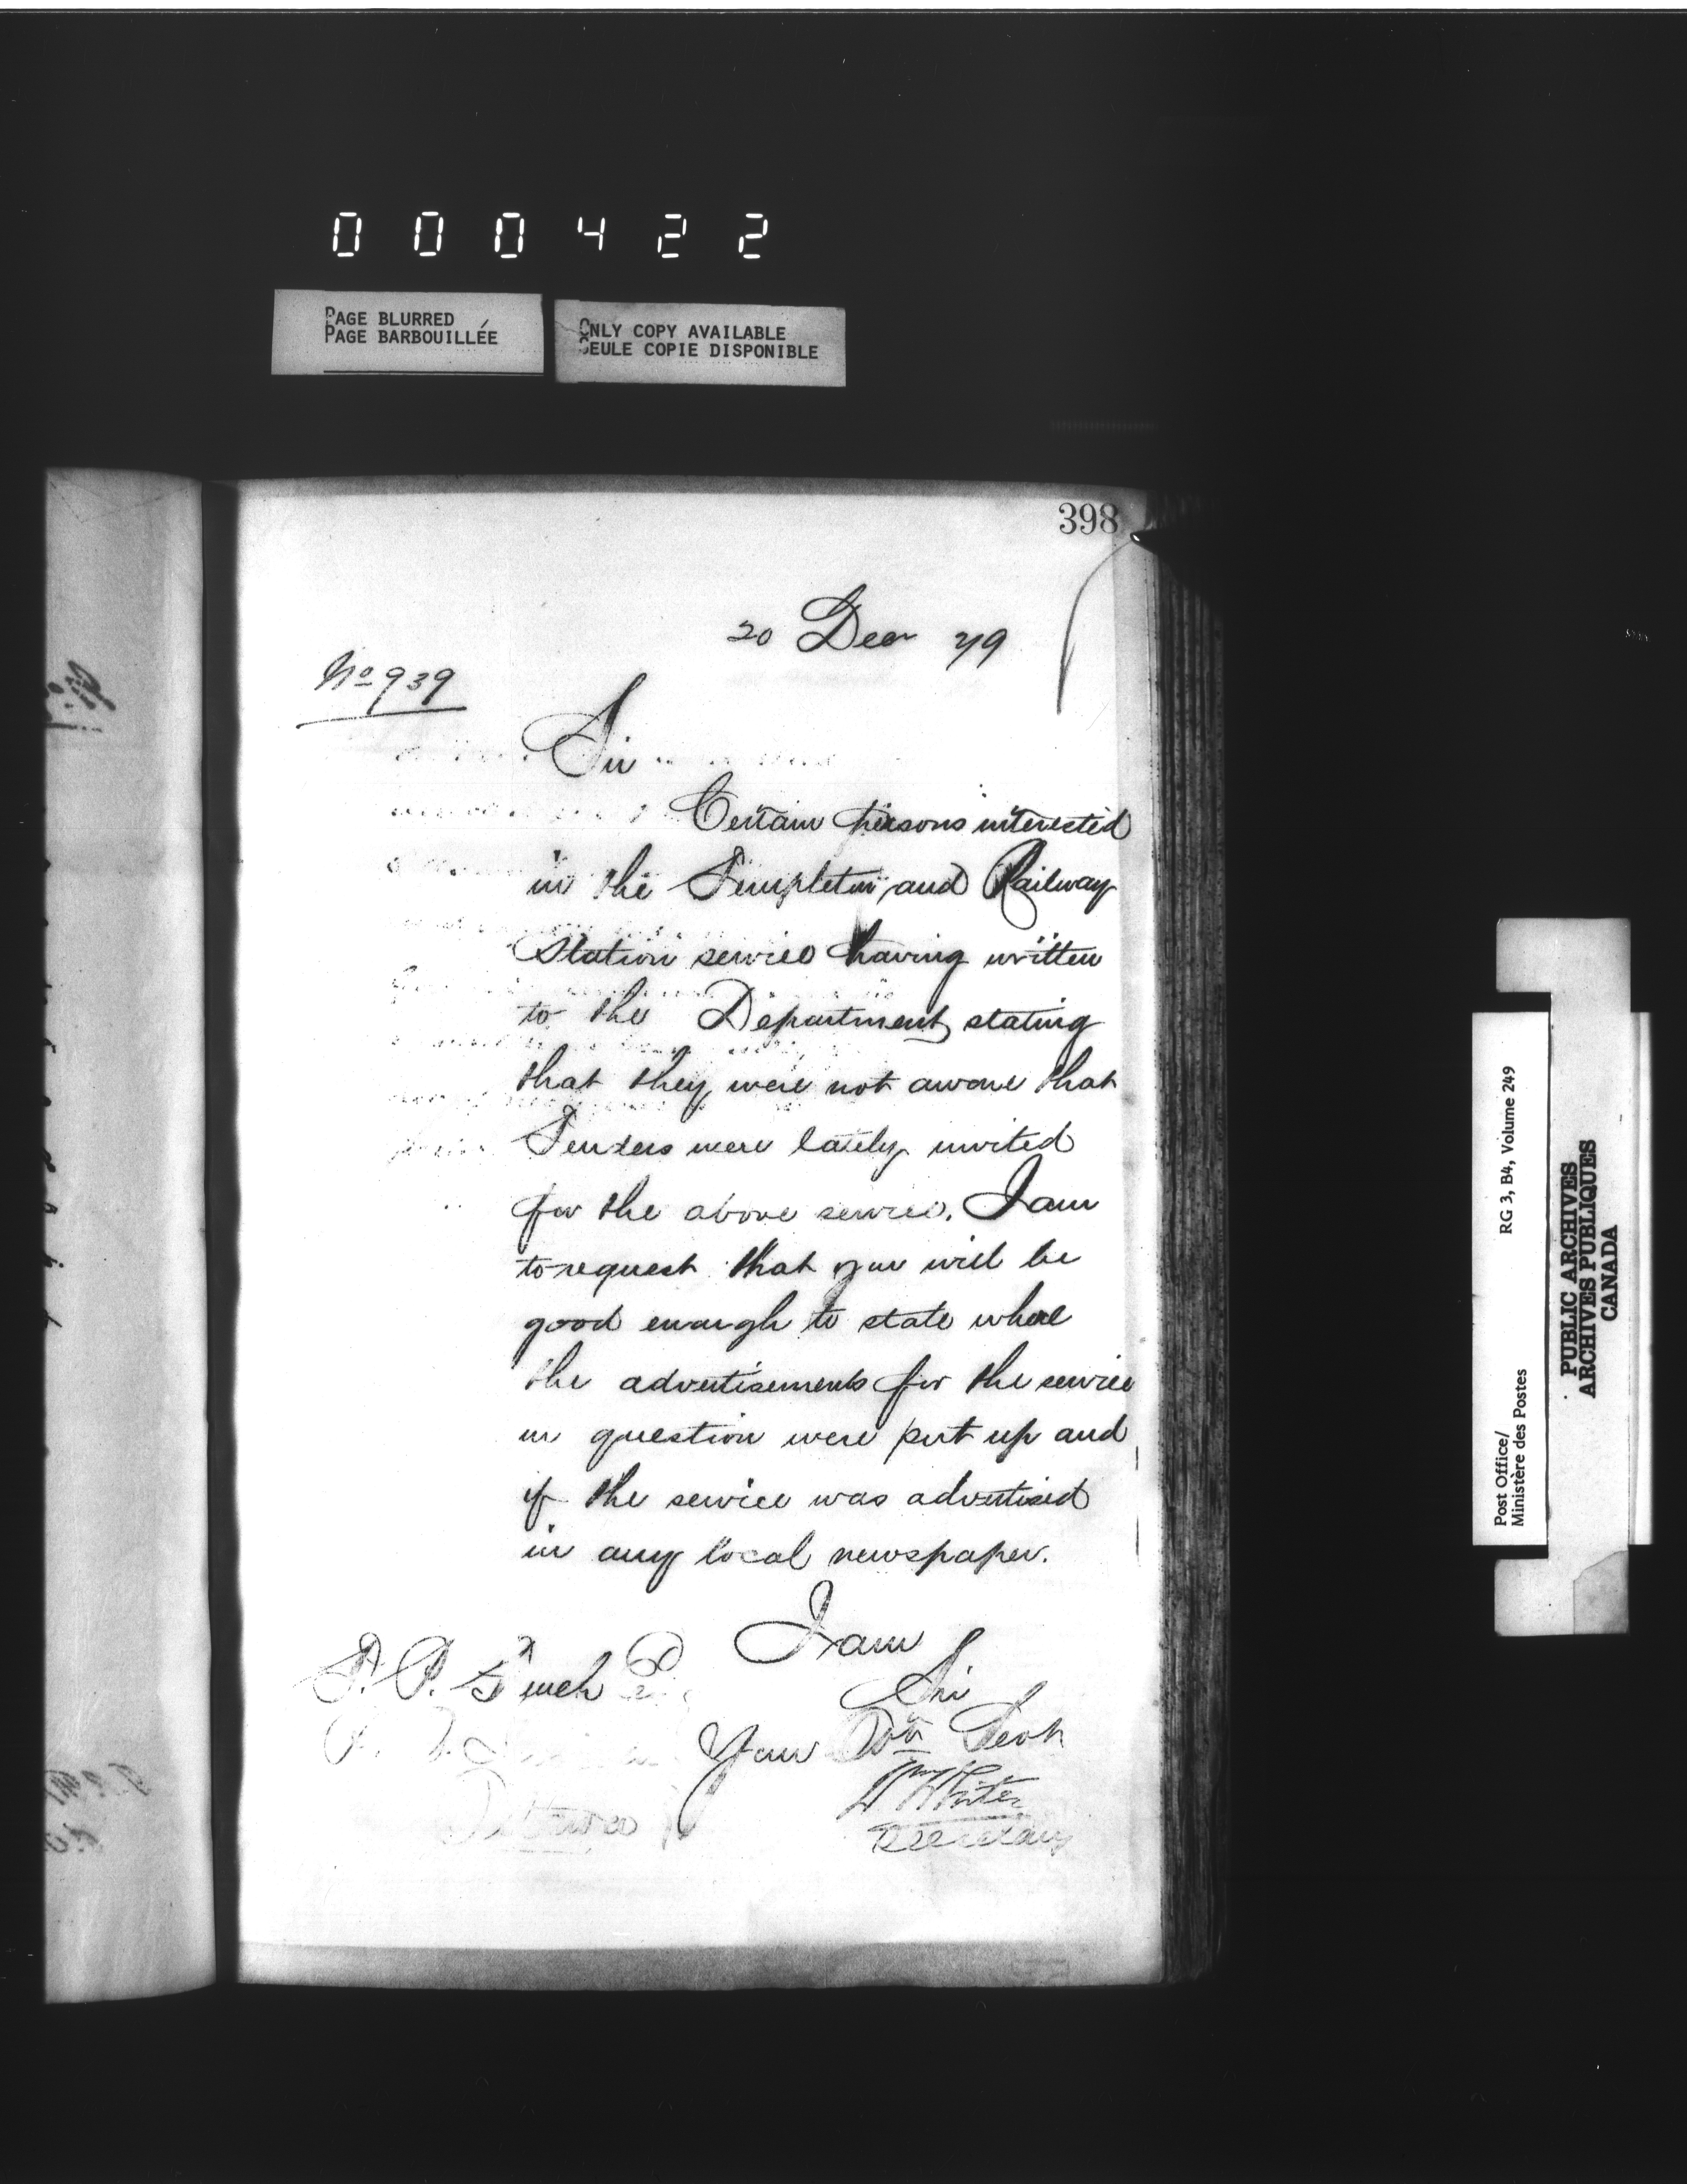 000422
PAGE BLURRED
PAGE BARBOUILLÉE
ONLY COPY AVAILABLE
SEULE COPIE DISPONIBLE
398
20 Decr 79
No 939
Sir
Certain persons interested
in the Templeton and Railway
Station service having written
to the Department stating
that they were not aware that
Tenders were lately invited
for the above service. I am
to request that you will be
good enough to state where
the advertisements for the service
in question were put up and
if the service was advertised
in any local newspaper.
I am
Sir
Your Obt Servt
Wm White
Secretary
T. P. French
Ottawa
Post Office/
Ministère des Postes
RG 3, B4, Volume 249
PUBLIC ARCHIVES
ARCHIVES PUBLIQUES
CANADA